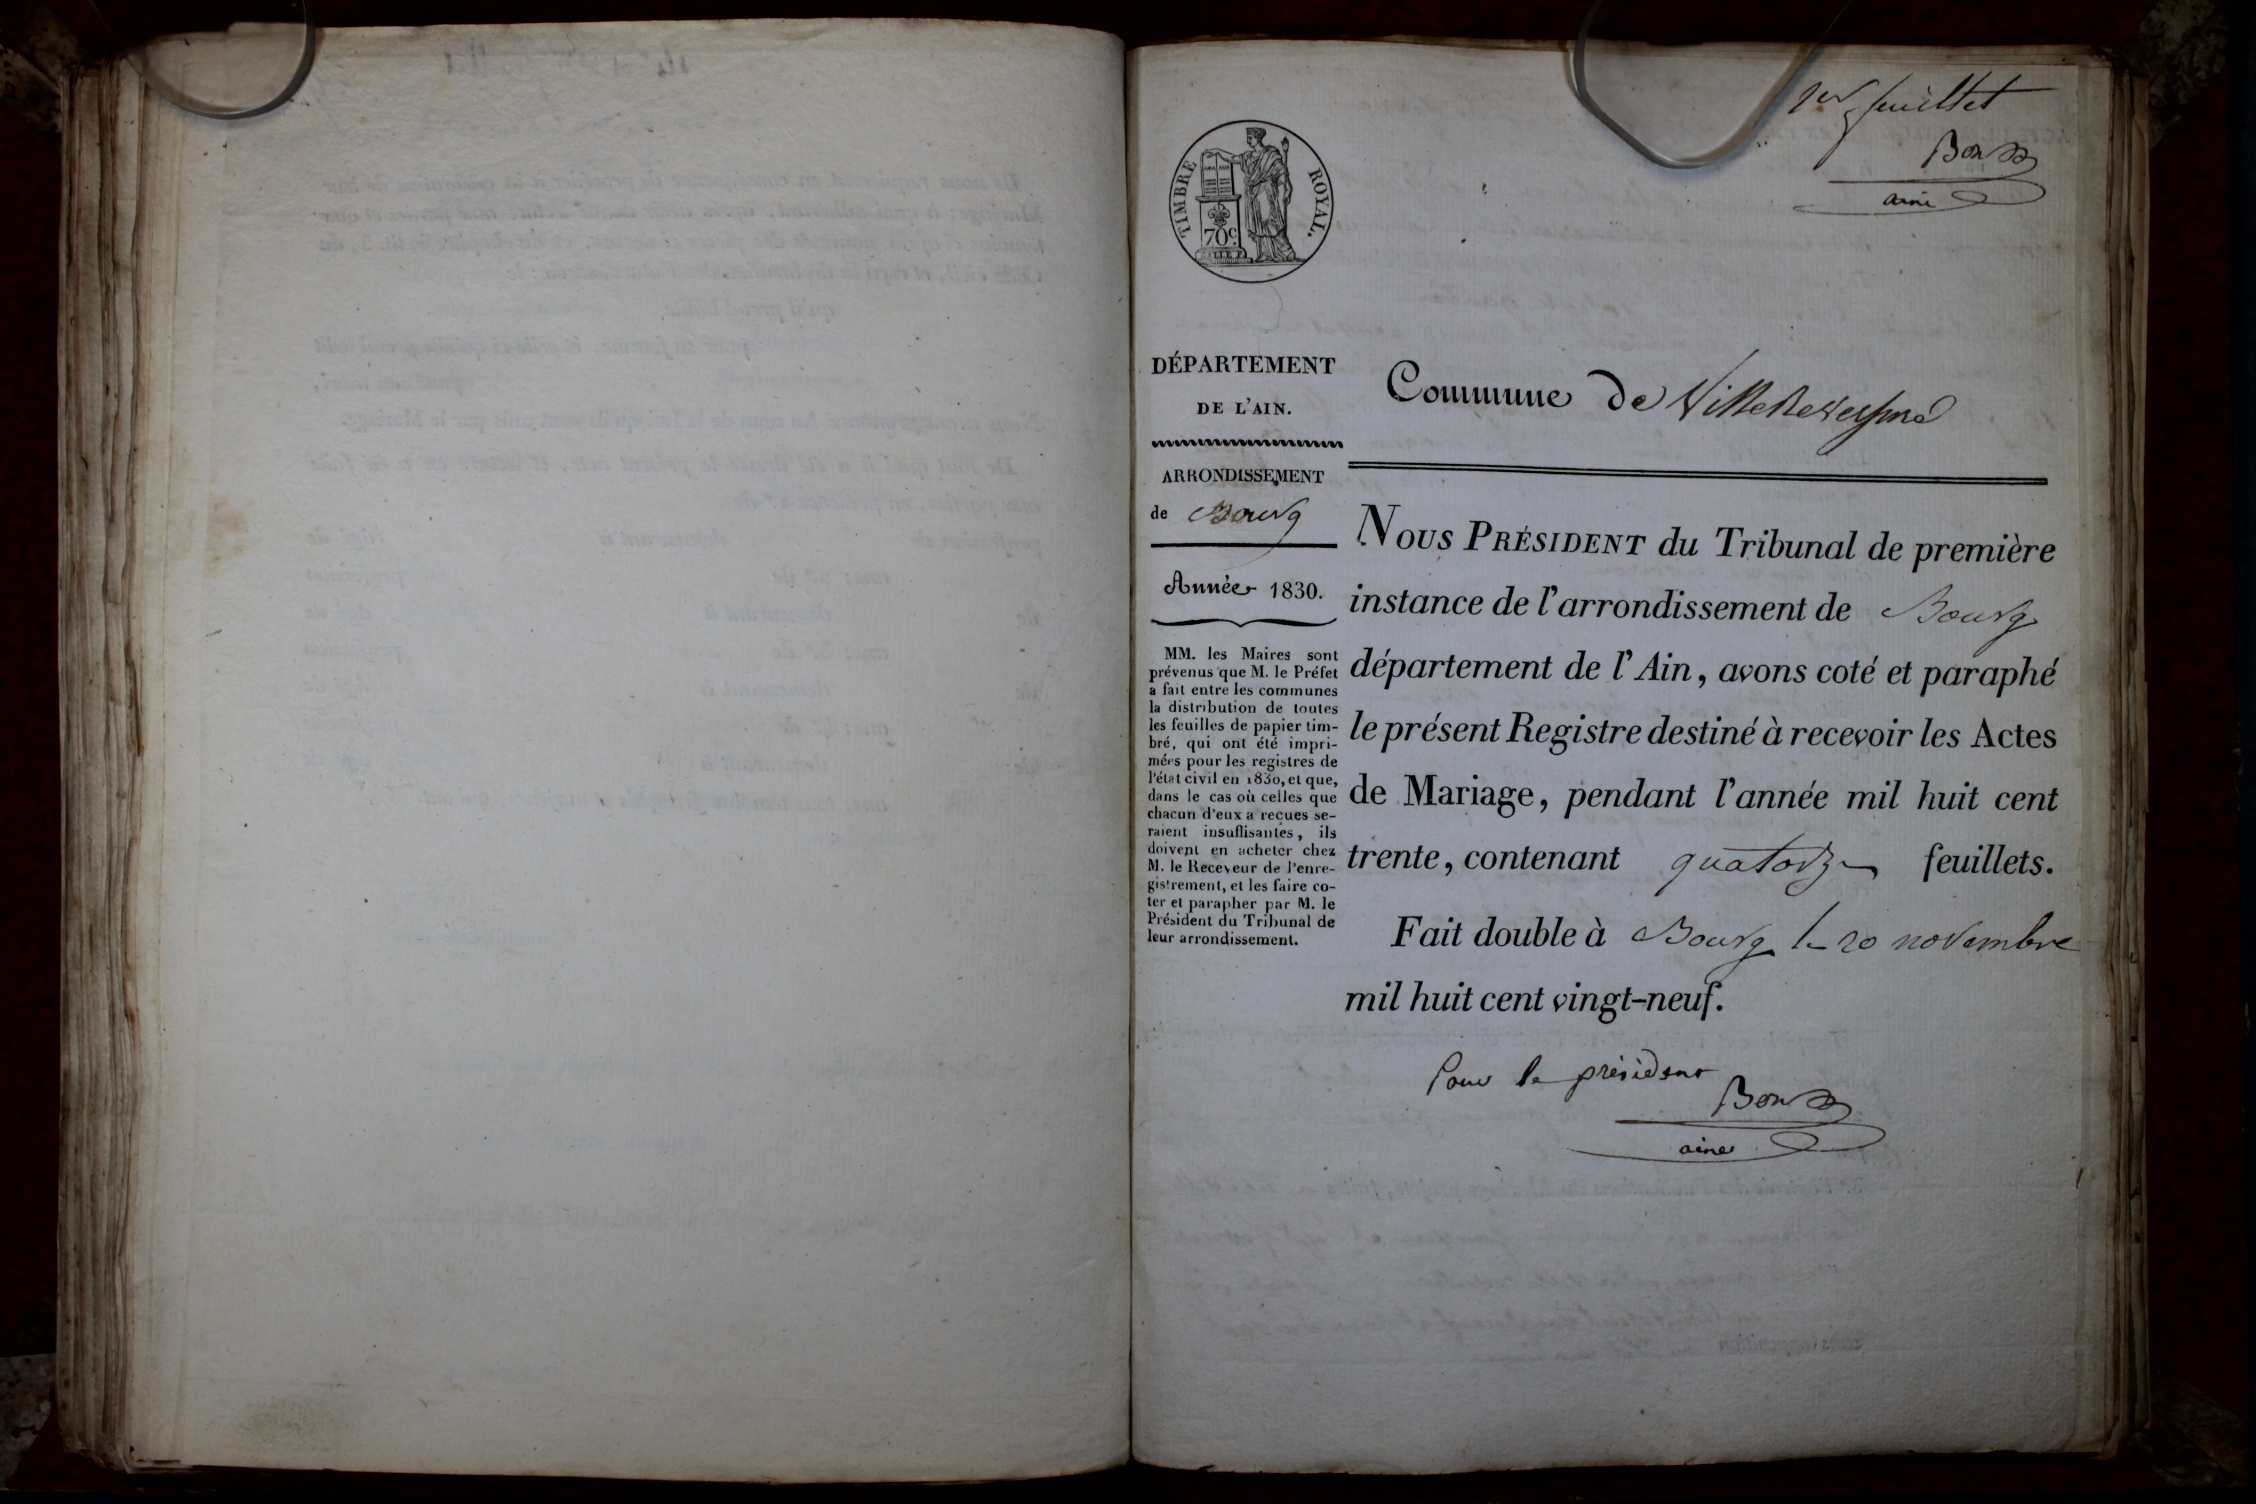 1er feuillet
aîné
TIMBRE ROYAL.
70c
DÉPARTEMENT
DE L'AIN.
ARRONDISSEMENT
de Bourg
Année 1830.
MM. les Maires sont
prévenus que M. le Préfet
a fait entre les communes
la distribution de toutes
les feuilles de papier tim-
bré, qui ont été impri-
mées pour les registres de
l'état civil en 1830, et que,
dans le cas où celles que
chacun d'eux a reçues se-
raient insuffisantes, ils
doivent en acheter chez
M. le Receveur de l'enre-
gistrement, et les faire co-
ter et parapher par M. le
Président du Tribunal de
leur arrondissement.
Commune de Villereversure
NOUS PRÉSIDENT du Tribunal de première
instance de l'arrondissement de Bourg
département de l'Ain, avons coté et paraphé
le présent Registre destiné à recevoir les Actes
de Mariage, pendant l'année mil huit cent
trente, contenant quatorze feuillets.
Fait double à Bourg le 20 novembre
mil huit cent vingt-neuf.
Pour le président
aîné